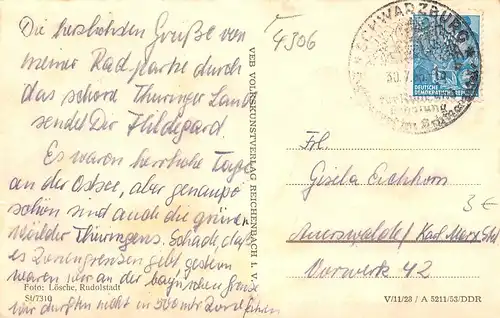 Die herzlichsten Grüße von
meiner Radpartie durch
das schöne Thüringer Land
sendet Dir Hildegard.
Es waren herrliche Tage
an der Ostsee, aber genauso
schön sind auch die grünen
Wälder Thüringens. Schade, daß
es Zonengrenzen gibt gestern
waren wir an der bayrischen Grenze
wir durften nicht in 500 mtr Zone fahren
Foto: Lösche, Rudolstadt
St/7310
VEB VOLKSKUNSTVERLAG REICHENBACH I. V.
4306
SCHWARZBURG
30.7.
DEUTSCHE
DEMOKRATISCHE REPUBLIK
Frl.
Gisela Eichhorn
3€
Auerswalde / Karl Marx Stadt
Vorwerk 42
V/11/28 / A 5211/53/DDR